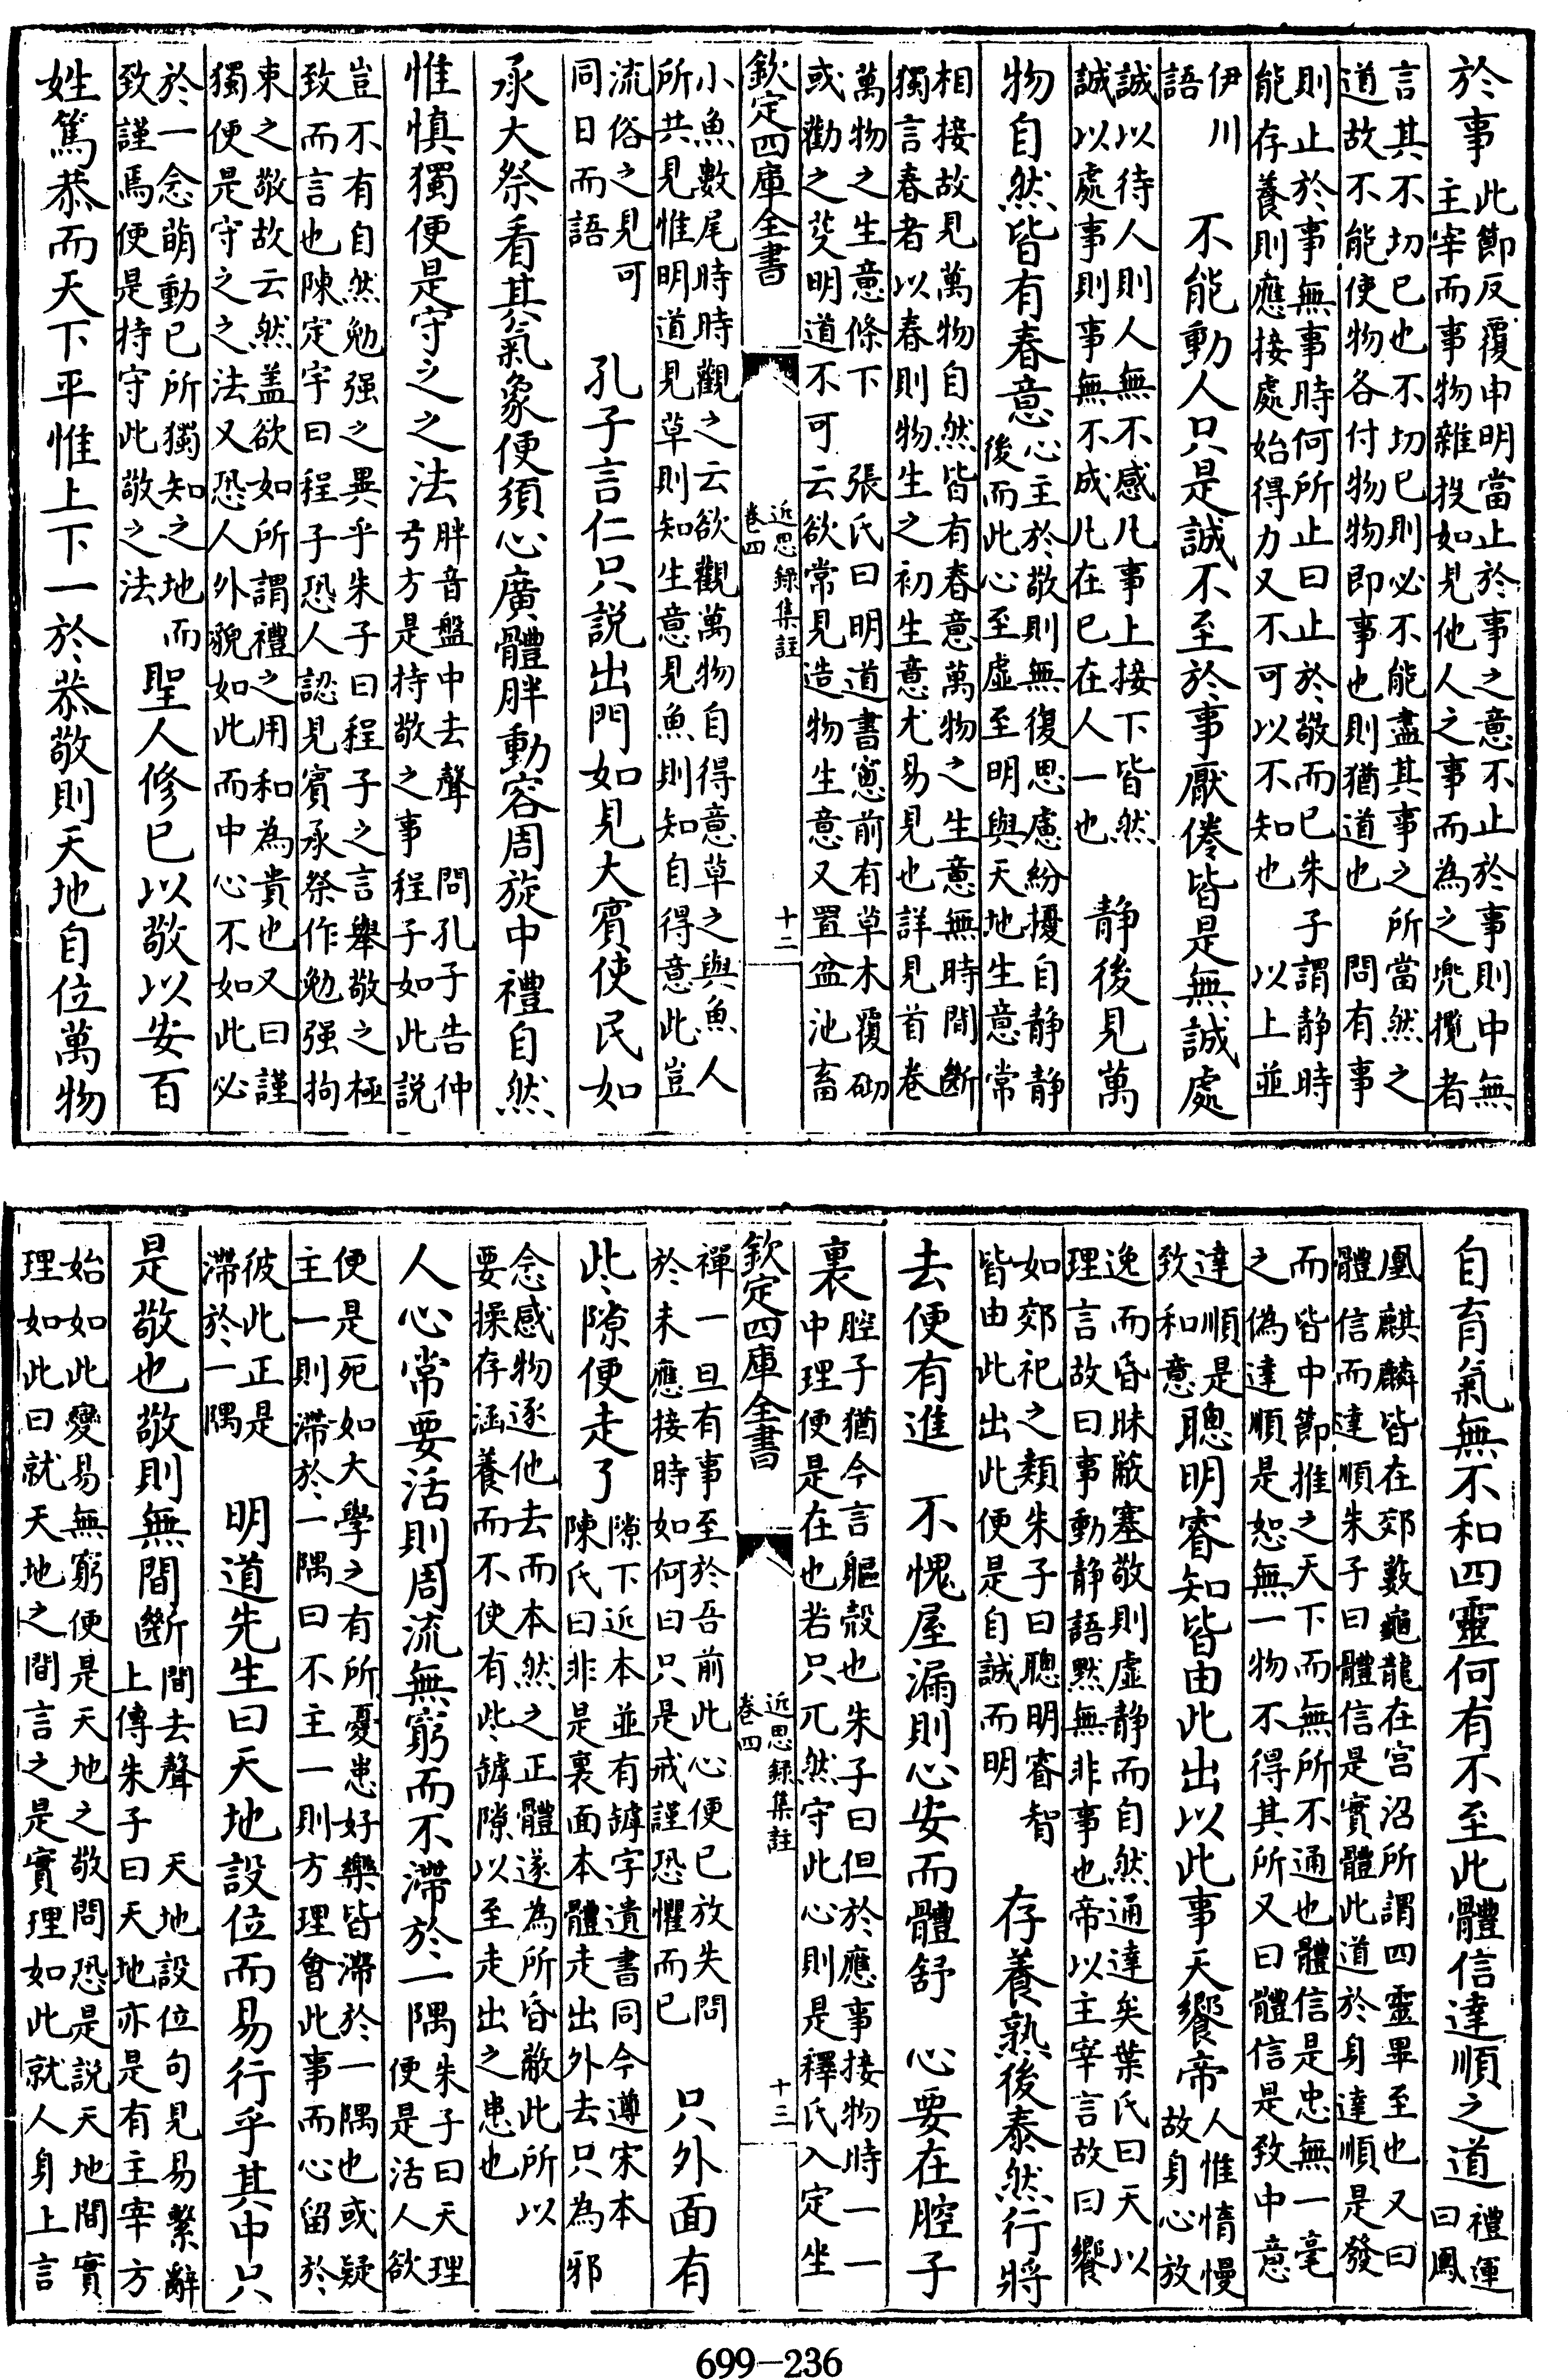 於事此節反覆申明當止於事之意不止於事則中無
主宰而事物雜投如見他人之事而為之兜攬者
言其不切已也不切已則必不能盡其事之所當然之
道故不能使物各付物物即事也則猶道也　問有事
則止於事無事時何所止曰止於敬而已朱子謂静時
能存養則應接處始得力又不可以不知也　以上並
伊川
語　不能動人只是誠不至於事厭倦皆是無誠處
誠以待人則人無不感凡事上接下皆然
誠以處事則事無不成凡在已在人一也　静後見萬
物自然皆有春意心主於敬則無復思慮紛擾自静静
後而此心至虛至明與天地生意常
相接故見萬物自然皆有春意萬物之生意無時間斷
獨言春者以春則物生之初生意尤易見也詳見首卷
萬物之生意條下　張氏曰明道書窓前有草木覆砌
或勸之芟明道不可云欲常見造物生意又置盆池畜
欽定四庫全書　近思録集註
卷四　十二
小魚數尾時時觀之云欲觀萬物自得意草之與魚人
所共見惟明道見草則知生意見魚則知自得意此豈
流俗之見可
同日而語　孔子言仁只説出門如見大賓使民如
承大祭看其氣象便須心廣體胖動容周旋中禮自然
惟慎獨便是守之之法胖音盤中去聲　問孔子告仲
弓方是持敬之事程子如此説
豈不有自然勉强之異乎朱子曰程子之言舉敬之極
致而言也陳定宇曰程子恐人認見賓承祭作勉强拘
束之敬故云然盖欲如所謂禮之用和為貴也又曰謹
獨便是守之之法又恐人外貌如此而中心不如此必
於一念萌動已所獨知之地而
致謹焉便是持守此敬之法　聖人修已以敬以安百
姓篤恭而天下平惟上下一於恭敬則天地自位萬物
自育氣無不和四靈何有不至此體信達順之道禮運
曰鳳
凰麒麟皆在郊藪龜龍在宫沼所謂四靈畢至也又曰
體信而達順朱子曰體信是實體此道於身達順是發
而皆中節推之天下而無所不通也體信是忠無一毫
之偽達順是恕無一物不得其所又曰體信是致中意
達順是
致和意　聰明睿知皆由此出以此事天饗帝人惟惰慢
故身心放
逸而昏昧蔽塞敬則虛静而自然通達矣葉氏曰天以
理言故曰事動静語黙無非事也帝以主宰言故曰饗
如郊祀之類朱子曰聰明睿智
皆由此出此便是自誠而明　存養熟後泰然行將
去便有進　不愧屋漏則心安而體舒　心要在腔子
裏腔子猶今言軀殼也朱子曰但於應事接物時一一
中理便是在也若只兀然守此心則是釋氏入定坐
欽定四庫全書　近思録集註
卷四　十三
禪一旦有事至於吾前此心便已放失問
於未應接時如何曰只是戒謹恐懼而已　只外面有
些隙便走了隙下近本並有罅字遺書同今遵宋本
陳氏曰非是裏面本體走出外去只為邪
念感物逐他去而本然之正體遂為所昏蔽此所以
要操存涵養而不使有些罅隙以至走出之患也
人心常要活則周流無窮而不滯於一隅朱子曰天理
便是活人欲
便是死如大學之有所憂患好樂皆滯於一隅也或疑
主一則滯於一隅曰不主一則方理會此事而心留於
彼此正是
滯於一隅　明道先生曰天地設位而易行乎其中只
是敬也敬則無間斷間去聲　天地設位句見易繫辭
上傳朱子曰天地亦是有主宰方
始如此變易無窮便是天地之敬問恐是説天地間實
理如此曰就天地之間言之是實理如此就人身上言
699－236